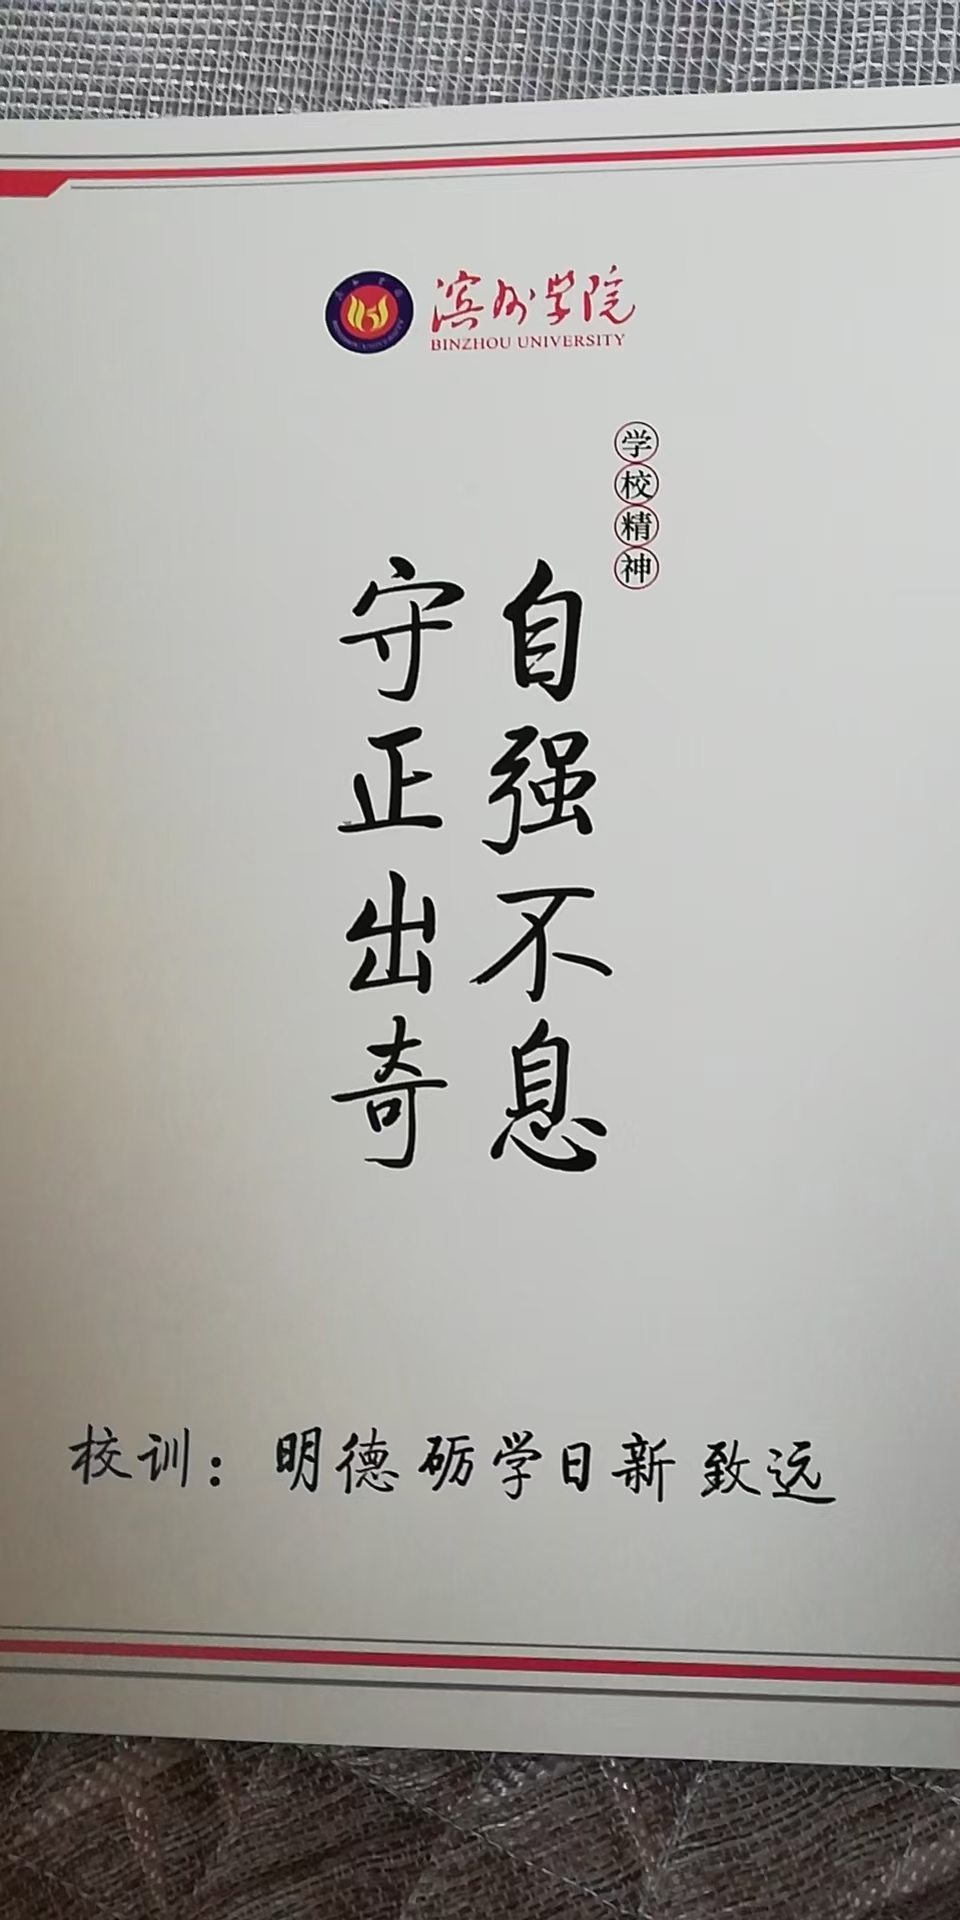 滨州学院
BINZHOU UNIVERSITY
学校精神
自强不息
守正出奇
校训：明德 砺学 日新 致远